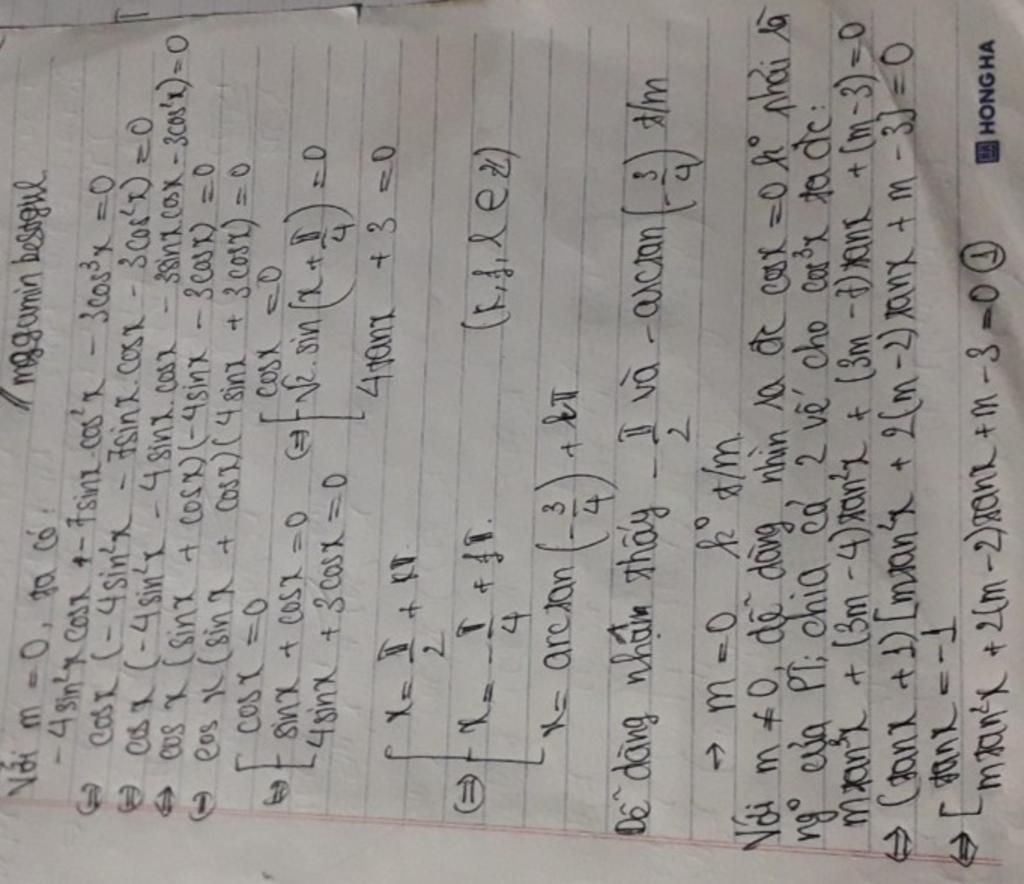 mggumin bestgirl
Với m = 0, ta có:
- 4sin²x cosx + - 7sinx.cos²x - 3cos³x = 0
⇔ cosx (- 4sin²x - 7sinx.cosx - 3cos²x) = 0
⇔ cosx (- 4sin²x - 4sinx cosx - 3sinx cosx - 3cos²x) = 0
⇔ cosx (sinx + cosx)(- 4sinx - 3cosx) = 0
⇔ cosx (sinx + cosx)(4sinx + 3cosx) = 0
⇔ [ cosx = 0 ⇔ [ cosx = 0
sinx + cosx = 0 √2.sin(x + π/4) = 0
4sinx + 3cosx = 0 4tanx + 3 = 0
⇔ [ x = π/2 + kπ
x = - π/4 + fπ. (k, f, l ∈ Z)
x = arctan(-3/4) + lπ
Dễ dàng nhậm thấy - π/2 và - arctan(-3/4) t/m
→ m = 0 k° t/m
Với m ≠ 0, dễ dàng nhìn ra đc cosx = 0 k° phải là
ng° của PT; chia cả 2 vế cho cos³x ta đc:
mtan³x + (3m - 4)tan²x + (3m - 7)tanx + (m - 3) = 0
⇔ (tanx + 1)[mtan²x + 2(m - 2)tanx + m - 3] = 0
⇔ [ tanx = - 1
mtan²x + 2(m - 2)tanx + m - 3 = 0 ①
HONGHA